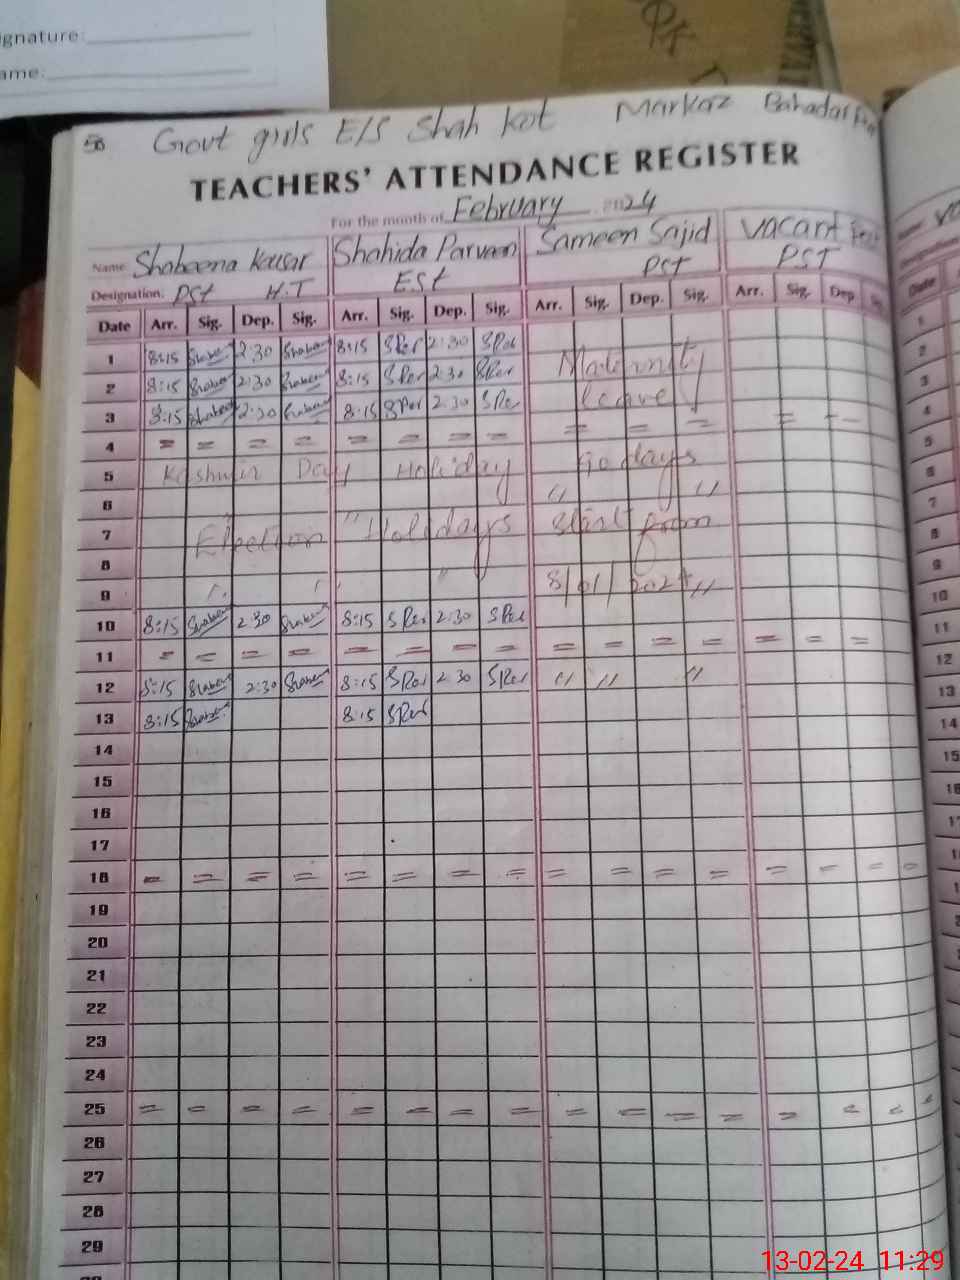 ignature:
ame:
50 Govt girls E/S Shah kot Markaz Bahadar
TEACHERS' ATTENDANCE REGISTER
For the month of February 2024
Name Shabeena Kausar Shahida Parveen Sameen Sajid Vacant
Designation. Pst H.T E.St Pst PST
Date Arr. Sig. Dep. Sig. Arr. Sig. Dep. Sig. Arr. Sig. Dep. Sig. Arr. Sig. Dep
1 8:15 Shabeen 2:30 Shabeen 8:15 SPer 2:30 SPer Maternity
2 8:15 Shabeen 2:30 Shabeen 8:15 SPer 2:30 SPer
3 8:15 Shabeen 2:30 Shabeen 8:15 SPer 2:30 SPer leave
4 = = = = = = = = = = = = =
5 Kashmir Day Holiday 90 days
6 " "
7 Election Holidays start from
8
9 8/01/2024 "
10 8:15 Shabeen 2:30 Shabeen 8:15 SPer 2:30 SPer
11 = = = = = = = = = = = = = = =
12 8:15 Shabeen 2:30 Shabeen 8:15 SPer 2:30 SPer " " "
13 8:15 Shabeen 8:15 SPer
14
15
16
17
18 = = = = = = = = = = = = = = = =
19
20
21
22
23
24
25 = = = = = = = = = = = = = = = =
26
27
28
29
Date
1
2
3
4
5
6
7
8
9
10
11
12
13
14
15
13-02-24 11:29